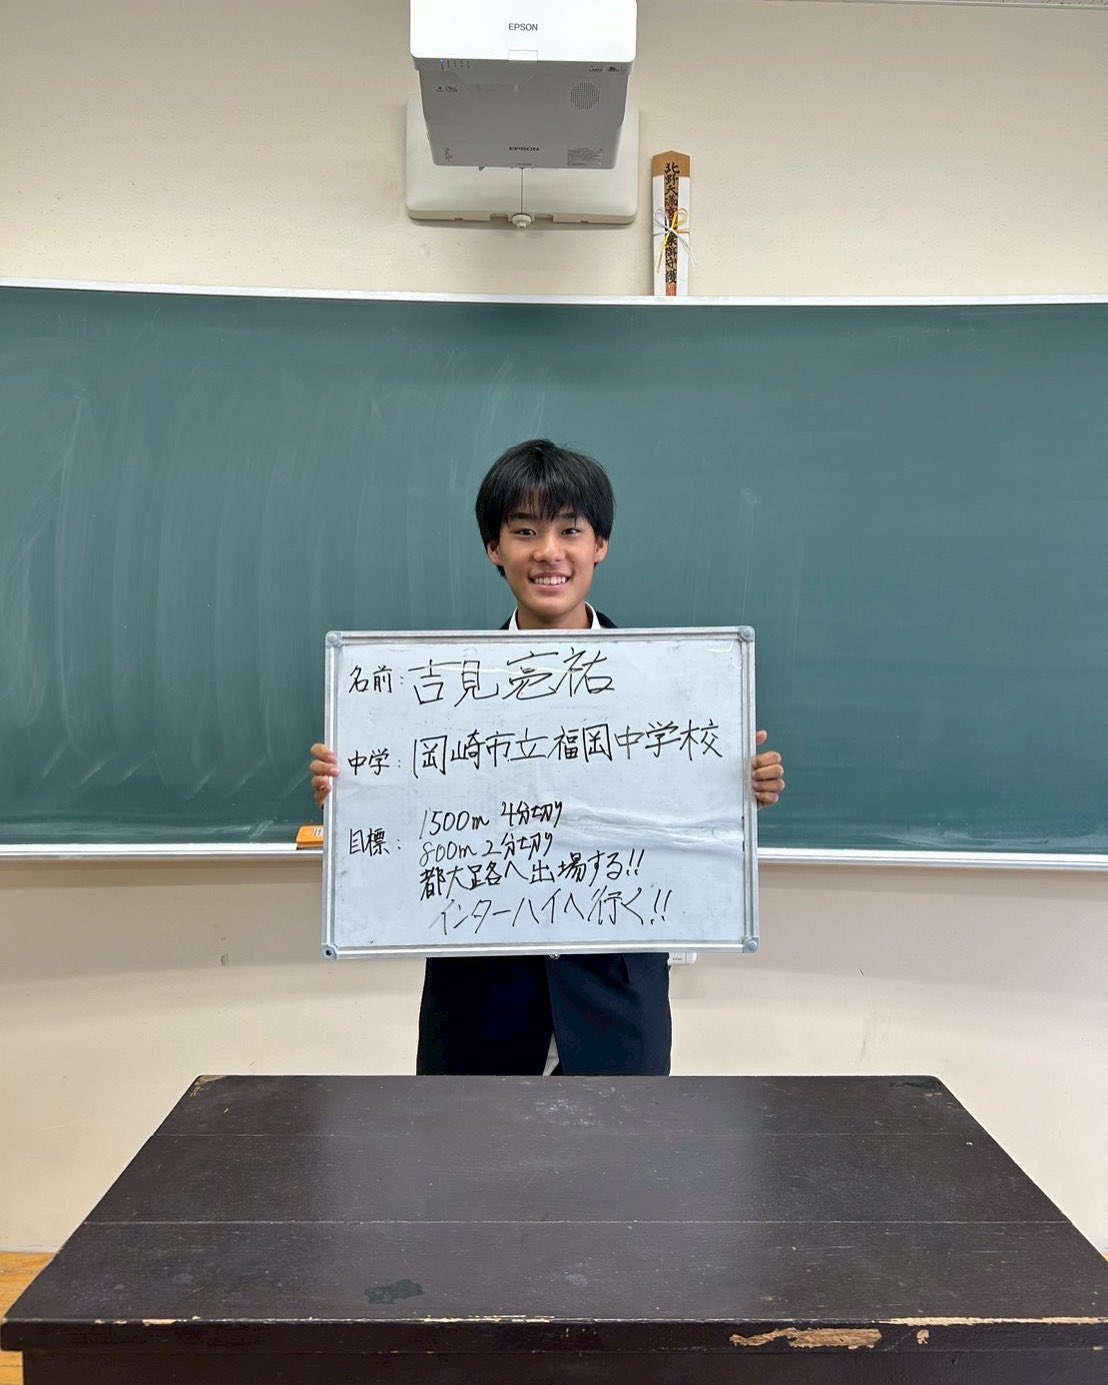 EPSON
EPSON
名前：吉見亮祐
中学：岡崎市立福岡中学校
目標：1500m 4分切り
800m 2分切り
都大路へ出場する!!
インターハイへ行く!!